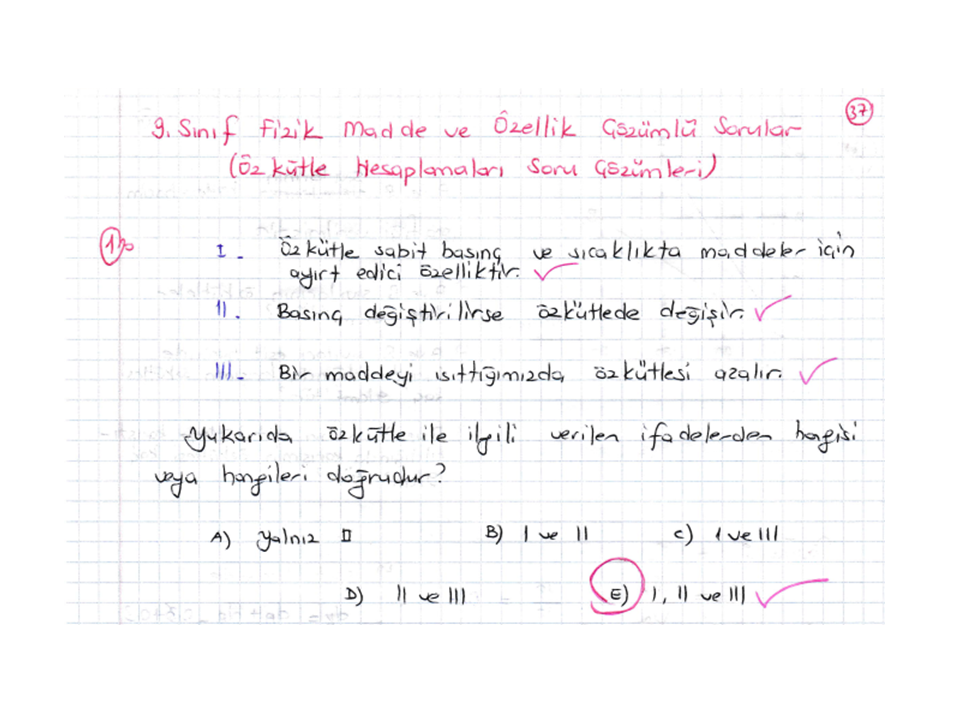 37
9. Sınıf Fizik Madde ve Özellik Çözümlü Sorular
(Özkütle Hesaplamaları Soru Çözümleri)
1)
I - Özkütle sabit basınç ve sıcaklıkta maddeler için
ayırt edici özelliktir.
II. Basınç değiştirilirse özkütlede değişir.
III- Bir maddeyi ısıttığımızda özkütlesi azalır.
Yukarıda özkütle ile ilgili verilen ifadelerden hangisi
veya hangileri doğrudur?
A) Yalnız II B) I ve II C) I ve III
D) II ve III E) I, II ve III